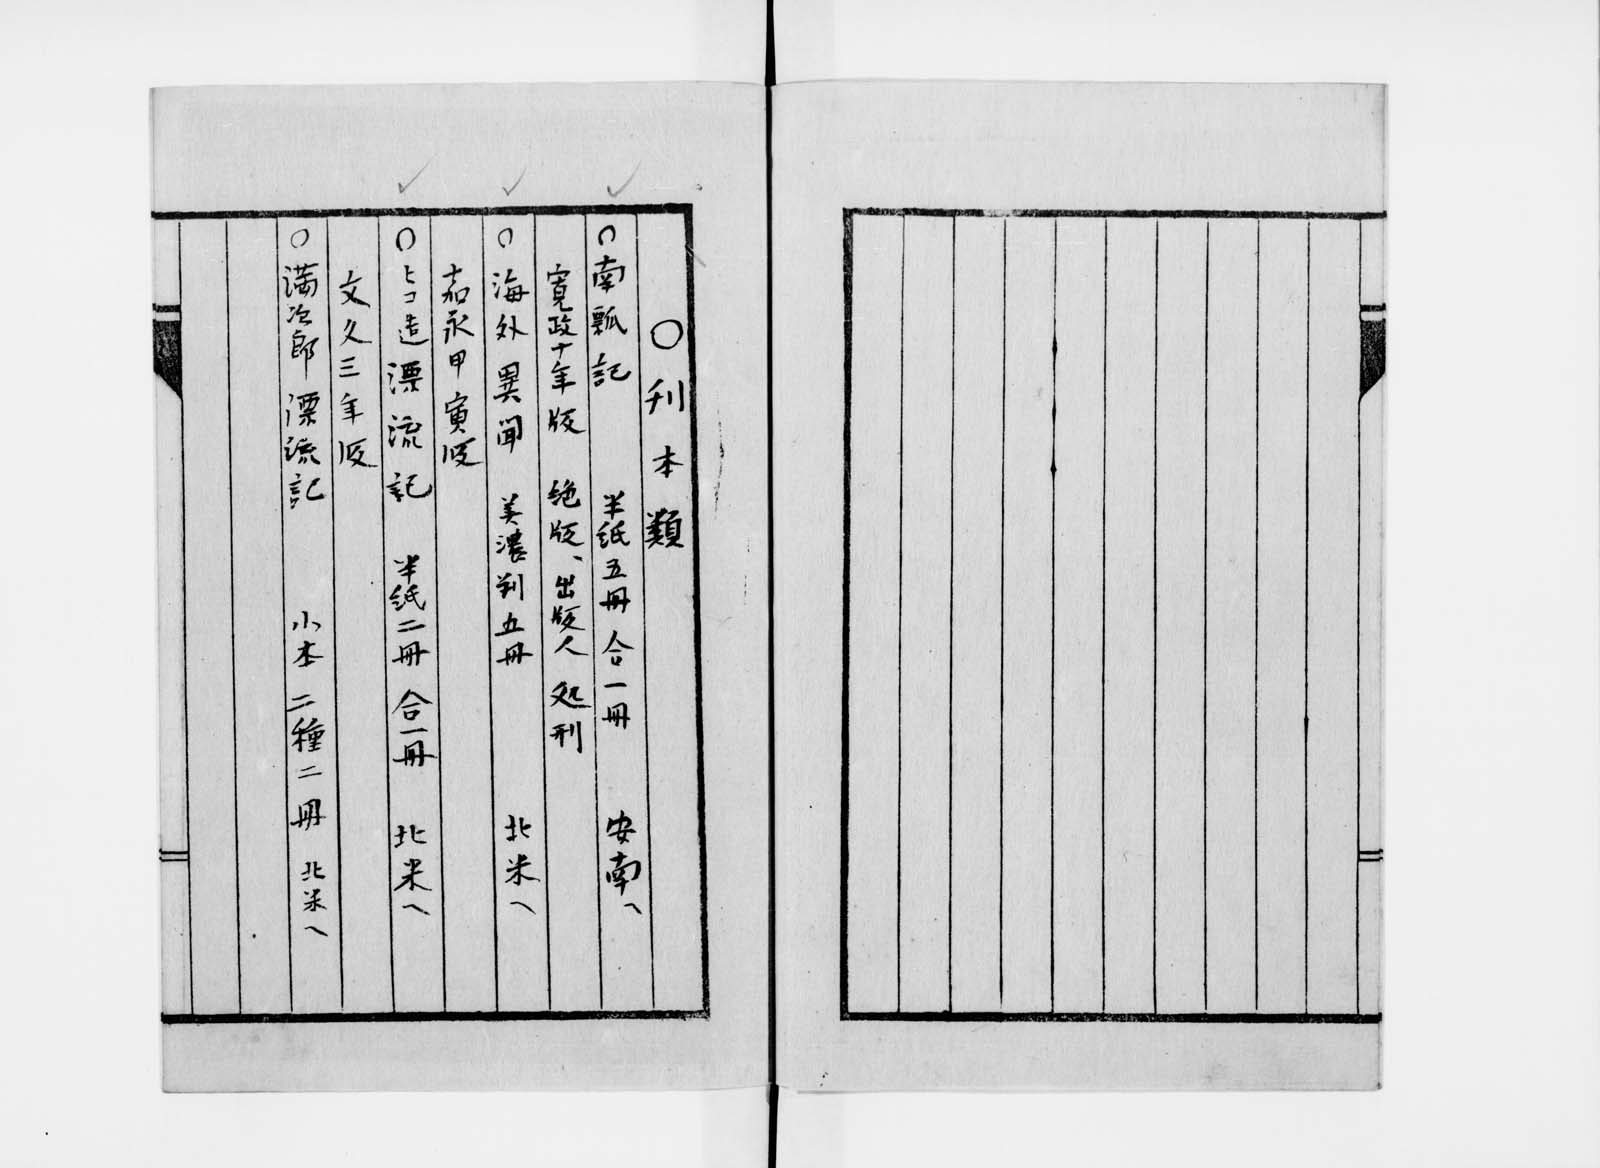 ○刋本類
○南瓢記　半紙五冊合一冊　安南へ
寛政十年版　絶版、出版人処刑
○海外異聞　美濃判五冊　北米へ
嘉永甲寅版
○ヒコ造漂流記　半紙二冊合一冊　北米へ
文久三年版
○満次郎漂流記　小本二種二冊　北米へ